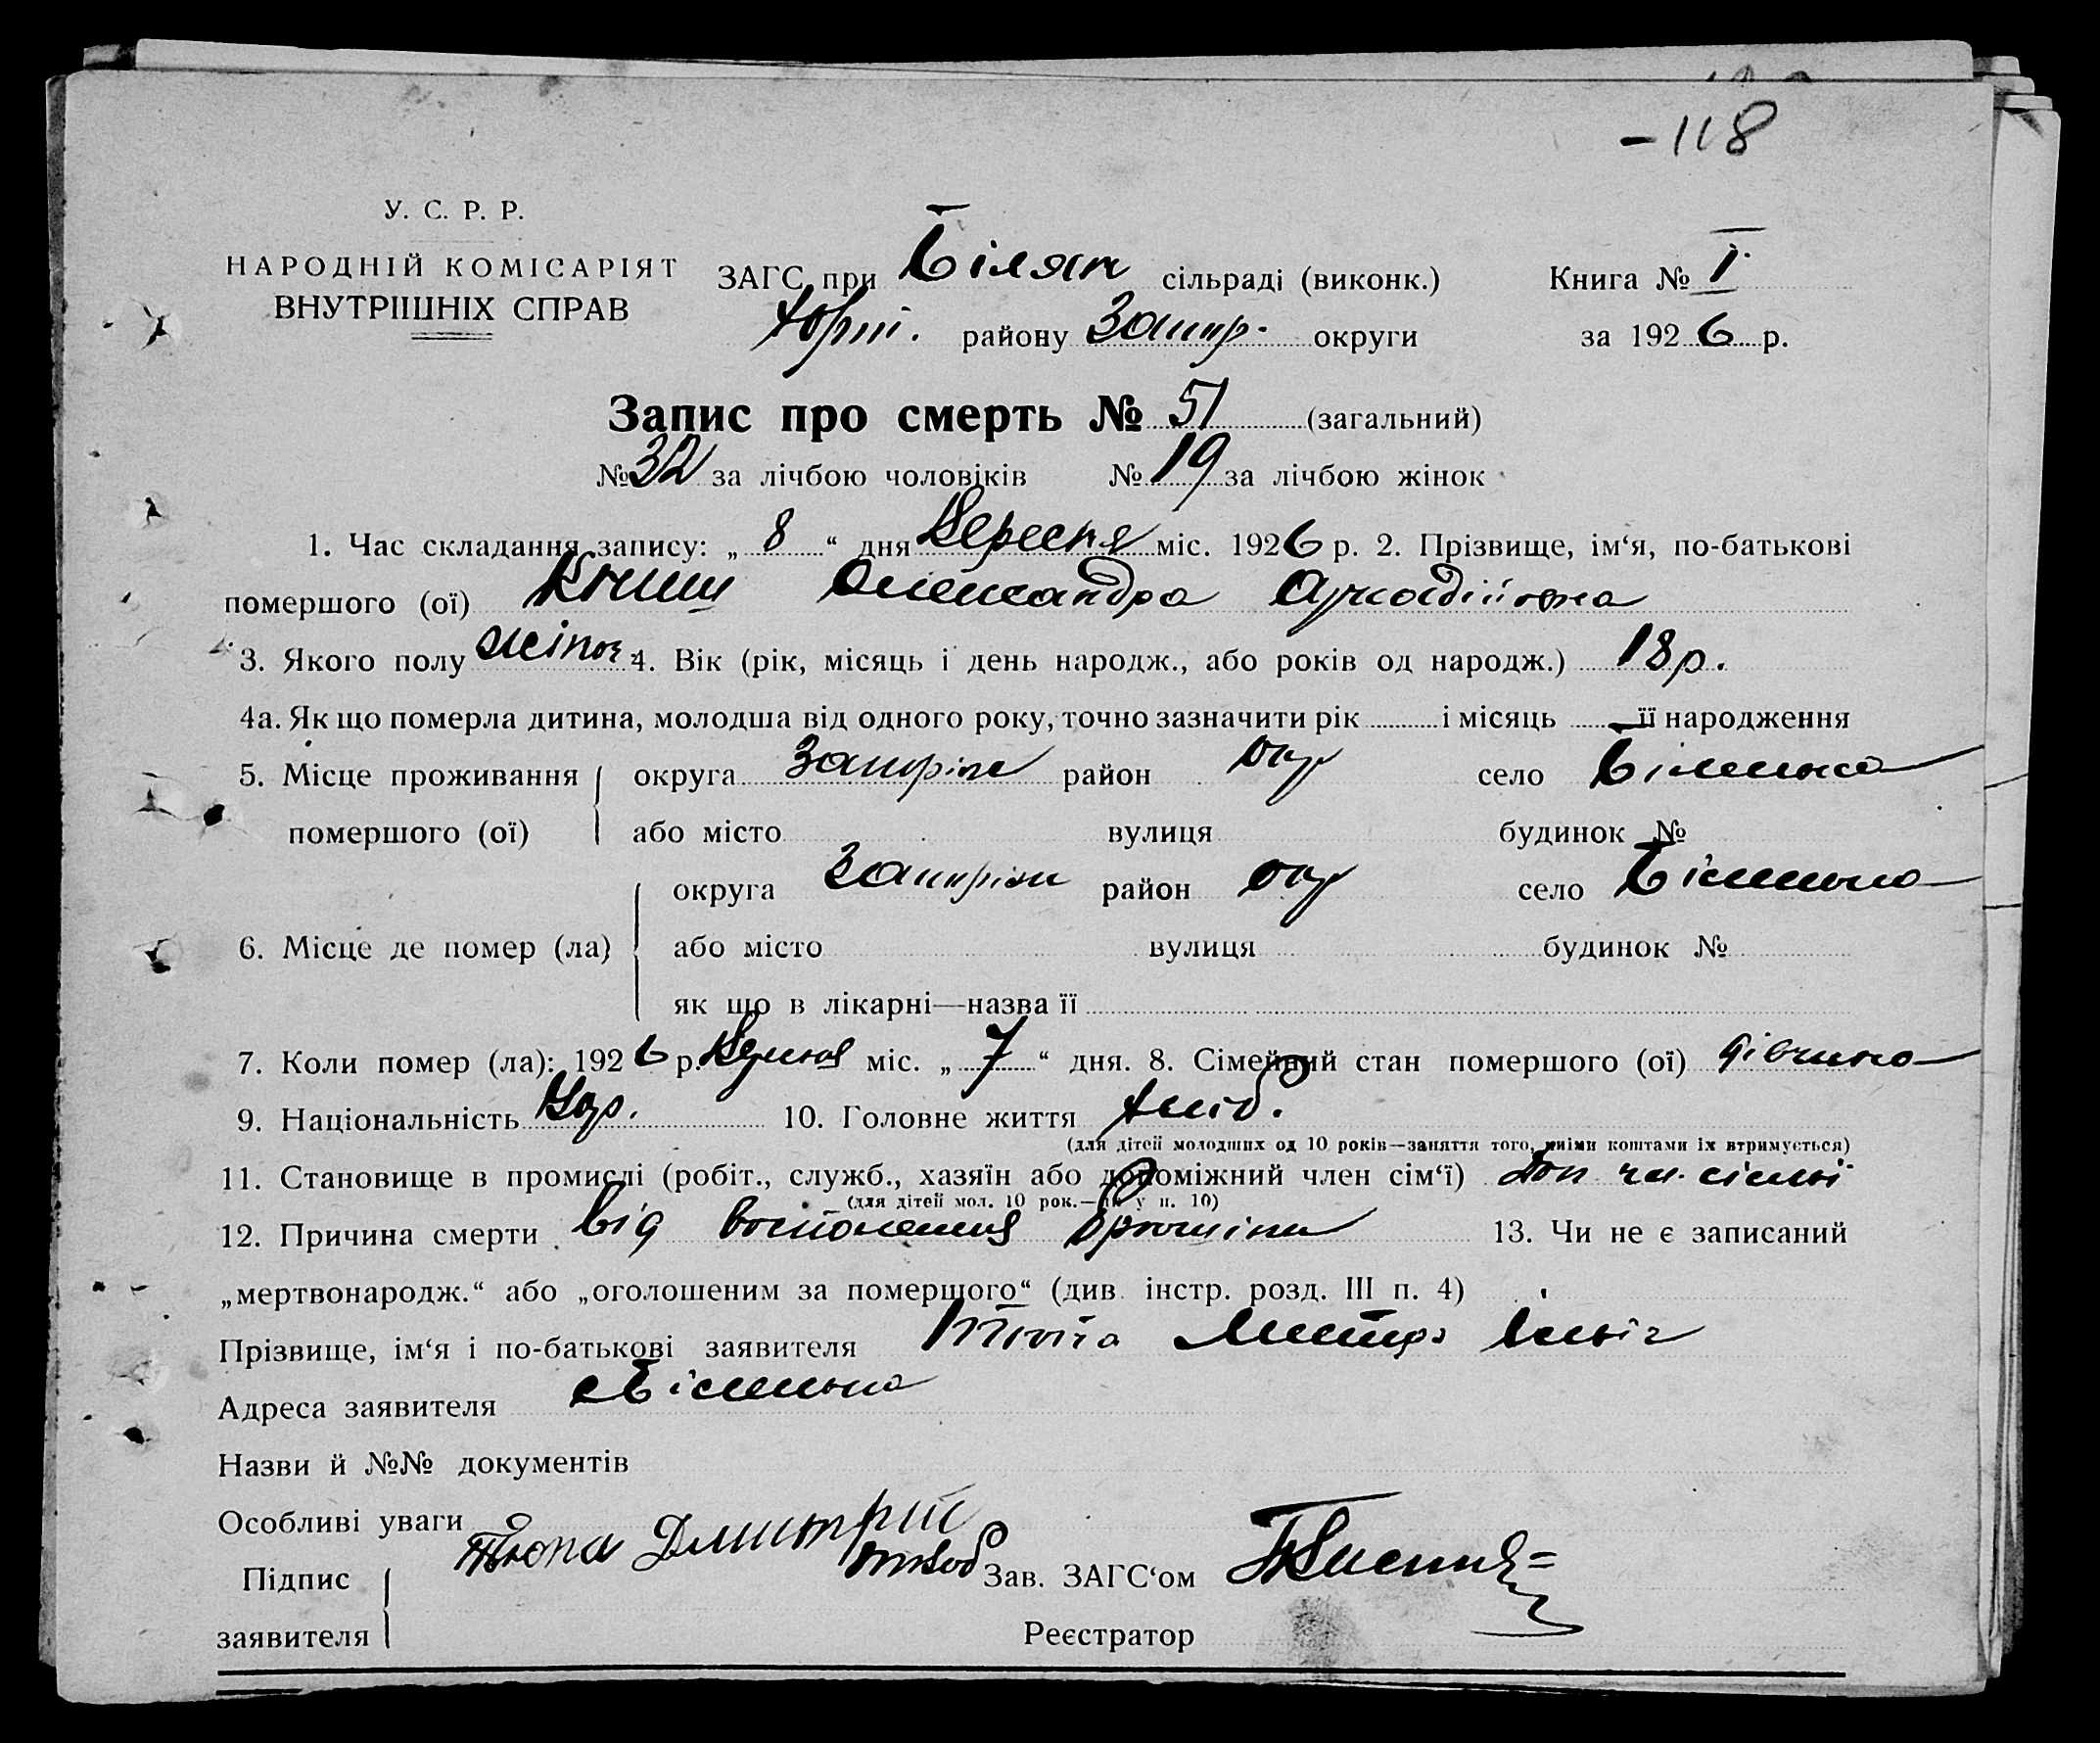 -118
У. С. Р. Р.
НАРОДНІЙ КОМІСАРІЯТ
ВНУТРІШНІХ СПРАВ
ЗАГС при сільраді (виконк.)
району Запор. округи
Книга № I
за 1926 р.
Запис про смерть № 51 (загальний)
№ 32 за лічбою чоловіків № 19 за лічбою жінок
1. Час складання запису: „ 8 “ дня Вересня міс. 1926 р. 2. Прізвище, ім‘я, по-батькові
помершого (ої) Олександра Аркадійовна
3. Якого полу жіноч. 4. Вік (рік, місяць і день народж., або років од народж.) 18 р.
4а. Як що померла дитина, молодша від одного року, точно зазначити рік і місяць її народження
5. Місце проживання округа Запоріж район село Біленька
помершого (ої) або місто вулиця будинок №
округа Запоріж район село Біленька
6. Місце де помер (ла) або місто вулиця будинок №
як що в лікарні—назва її
7. Коли помер (ла): 1926 р. Вересня міс. „ 7 “ дня. 8. Сімейний стан помершого (ої) дівчина
9. Національність Укр. 10. Головне життя хліб.
(для дітей молодших од 10 років—заняття того, чиїми коштами їх втримується)
11. Становище в промислі (робіт., служб., хазяїн або допоміжний член сім‘ї) доп чл. сімьї
(для дітей мол. 10 рок.— у п. 10)
12. Причина смерти від восполения брюшини 13. Чи не є записаний
„мертвонародж.“ або „оголошеним за помершого“ (див. інстр. розд. III п. 4)
Прізвище, ім‘я і по-батькові заявителя
Адреса заявителя с Біленька
Назви й №№ документів
Особливі уваги
Підпис Тюпа Дмитрий Зав. ЗАГС‘ом
заявителя Реєстратор